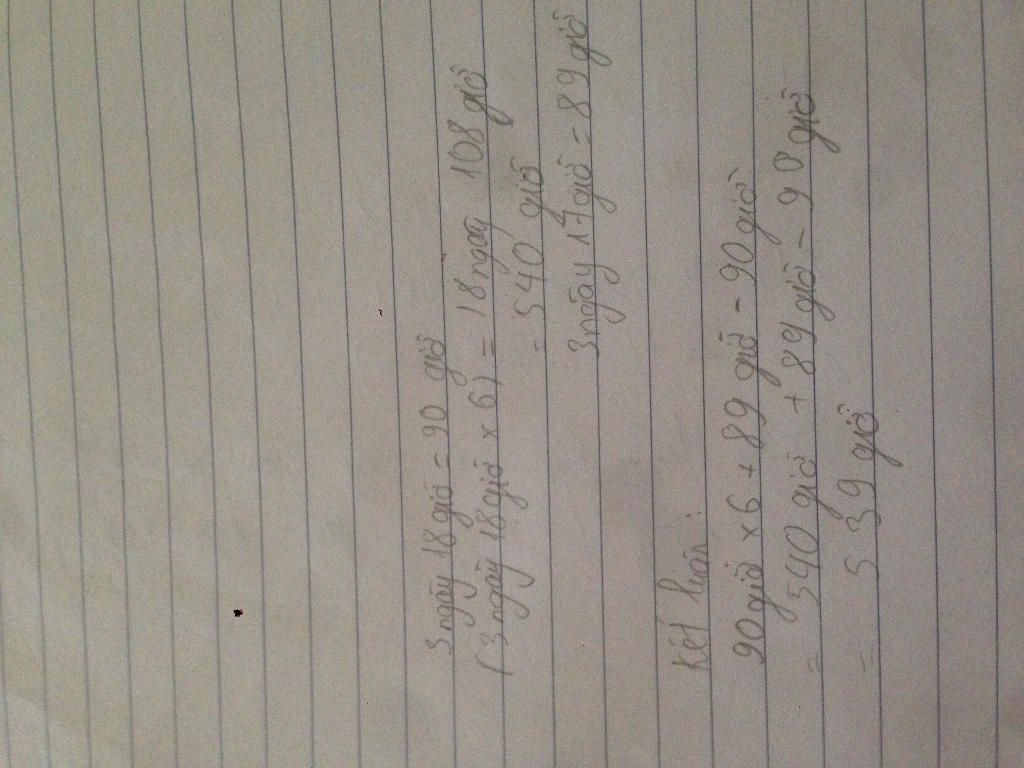 3 ngày 18 giờ = 90 giờ
( 3 ngày 18 giờ x 6 ) = 18 ngày 108 giờ
= 540 giờ
3 ngày 17 giờ = 89 giờ
Kết luận:
90 giờ x 6 + 89 giờ - 90 giờ
= 540 giờ + 89 giờ - 90 giờ
= 539 giờ